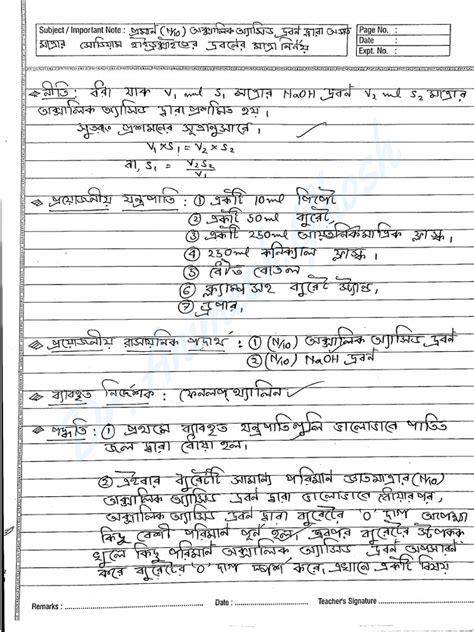 Subject / Important Note : প্রমাণ (N/10) অক্সালিক অ্যাসিড দ্রবণ দ্বারা অজানা
মাত্রার সোডিয়াম হাইড্রক্সাইডের দ্রবনের মাত্রা নির্ণয়
Page No. :
Date :
Expt. No. :
নীতি : ধরা যাক V₁ ml S₁ মাত্রার NaOH দ্রবণ V₂ ml S₂ মাত্রার
অক্সালিক অ্যাসিড দ্বারা প্রশমিত হয়।
সুতরাং প্রশমনের সূত্রানুসারে।
V₁ × S₁ = V₂ × S₂
বা, S₁ = V₂S₂/V₁
প্রয়োজনীয় যন্ত্রপাতি : ① একটি 10ml পিপেট
② একটি 50ml ব্যুরেট,
③ একটি 250ml আয়তনিকমাত্রিক ফ্লাস্ক।
④ 250ml কনিক্যাল ফ্লাস্ক।
⑤ বোতল
⑥ ক্ল্যাম্প সহ ব্যুরেট স্ট্যান্ড।
⑦ ড্রপার।
প্রয়োজনীয় রাসায়নিক পদার্থ : ① (N/10) অক্সালিক অ্যাসিড দ্রবণ
② (N/10) NaOH দ্রবণ
ব্যবহৃত নির্দেশক : ফেনলপ্‌থ্যালিন।
পদ্ধতি : ① প্রথমে ব্যবহৃত যন্ত্রপাতিগুলি ভালোভাবে পাতিত
জল দ্বারা ধোয়া হল।
② এইবার ব্যুরেটটি সামান্য পরিমান জ্ঞাতমাত্রার (N/10)
অক্সালিক অ্যাসিড দ্রবণ দ্বারা ভালোভাবে ধোয়ারপর,
অক্সালিক অ্যাসিড দ্রবণ দ্বারা ব্যুরেটের '0' দাগ অপেক্ষা
কিছু বেশী পরিমান পূর্ন হল, এরপর ব্যুরেটের স্টপকক
খুলে কিছু পরিমান অক্সালিক অ্যাসিড দ্রবণ অপসারন
করে ব্যুরেটের '0' দাগ স্পর্শ করে, এখানে একটি বিষয়
Remarks :
Date :
Teacher's Signature